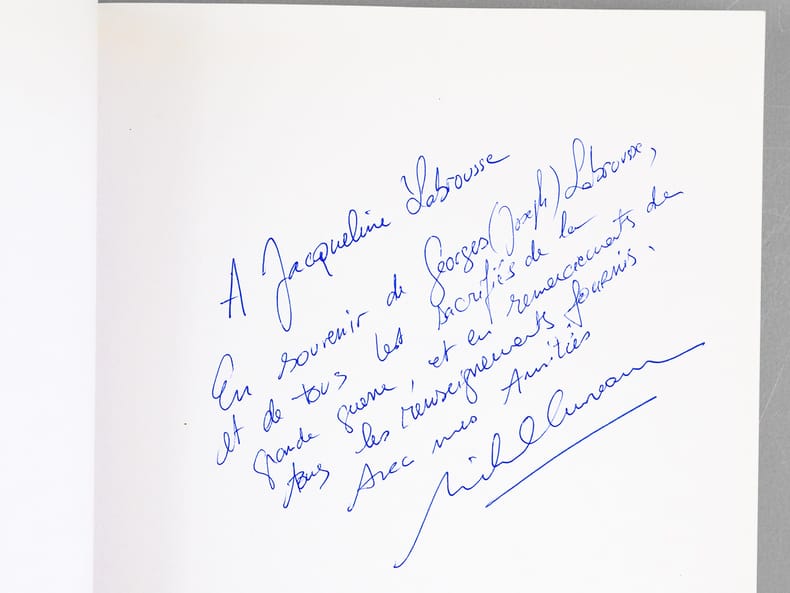 A Jacqueline Labrousse
En souvenir de Georges (Joseph) Labrousse,
et de tous les sacrifiés de la
grande guerre, et en remerciements de
tous les renseignements fournis.
Avec mes Amitiés
Michel